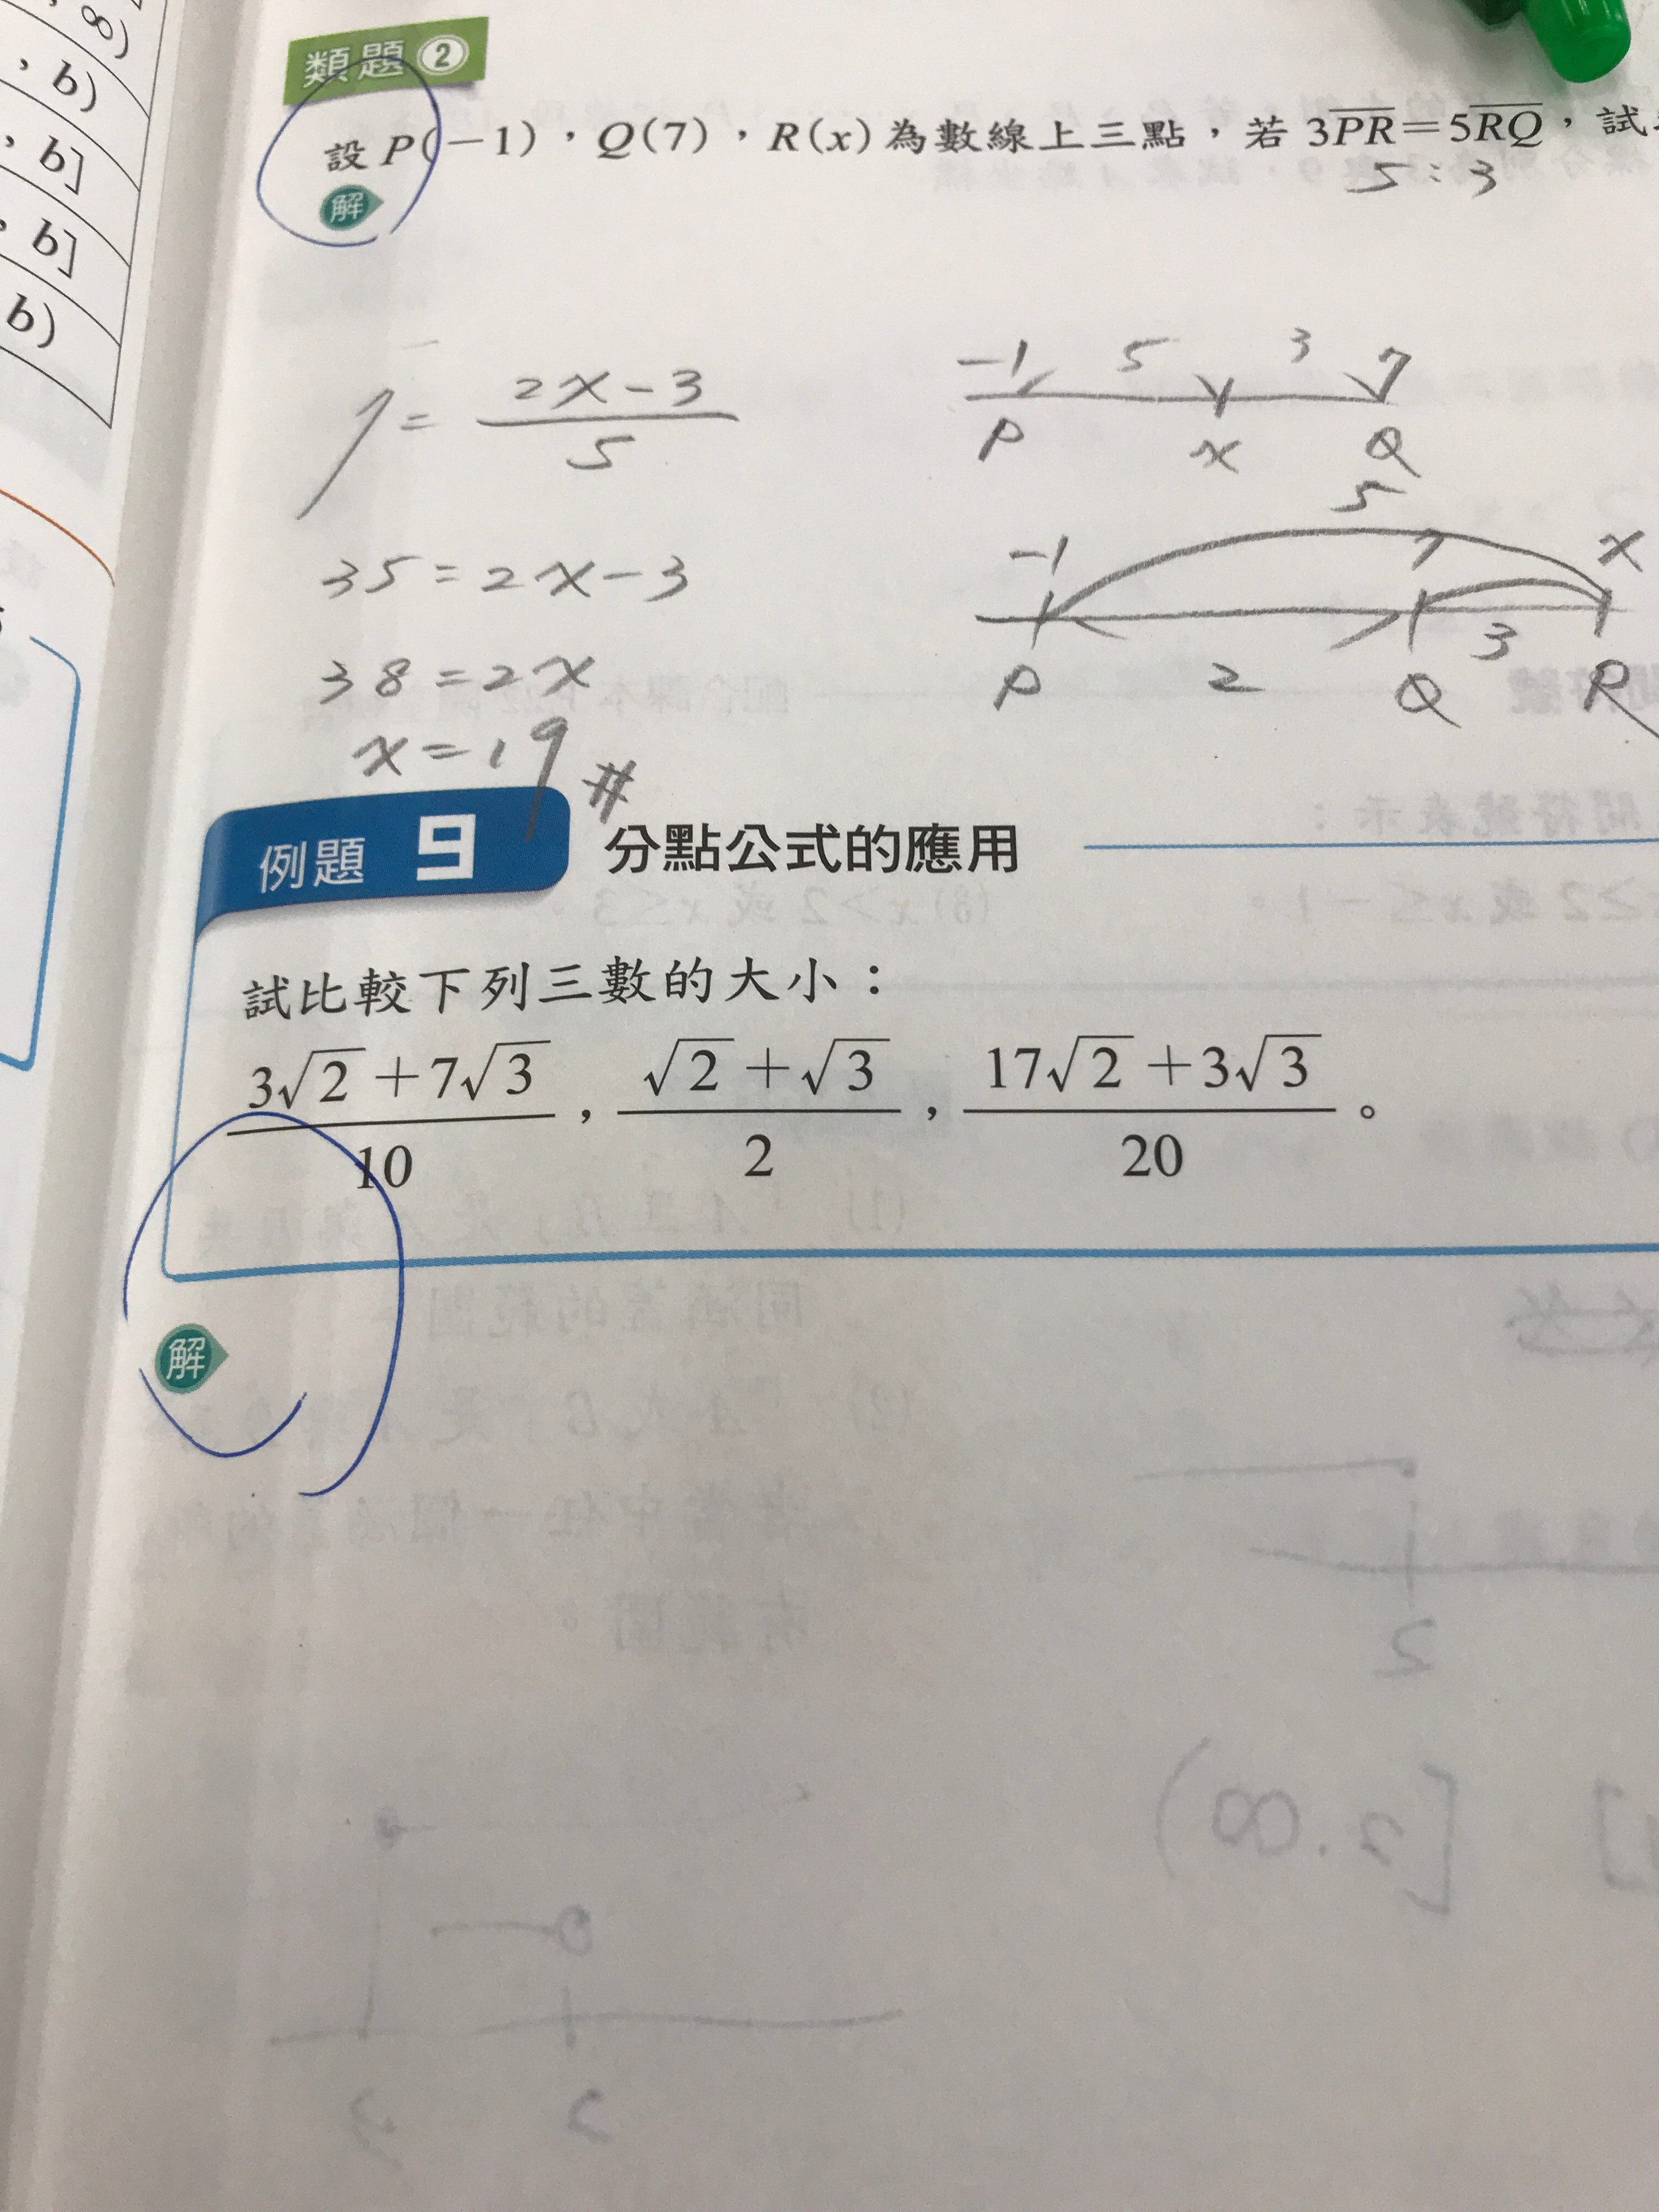 8)
, b)
, b]
, b]
b)
類題 2
設 P(−1),Q(7),R(x)為數線上三點,若 3PR=5RQ,試
5:3
解
7 = (2x−3)/5
35=2x−3
38=2x
x=19 #
−1 5 3 7
P x Q
5
−1 7 x
P 2 Q 3 R
例題 9 分點公式的應用
試比較下列三數的大小:
(3√2+7√3)/10,(√2+√3)/2,(17√2+3√3)/20。
解